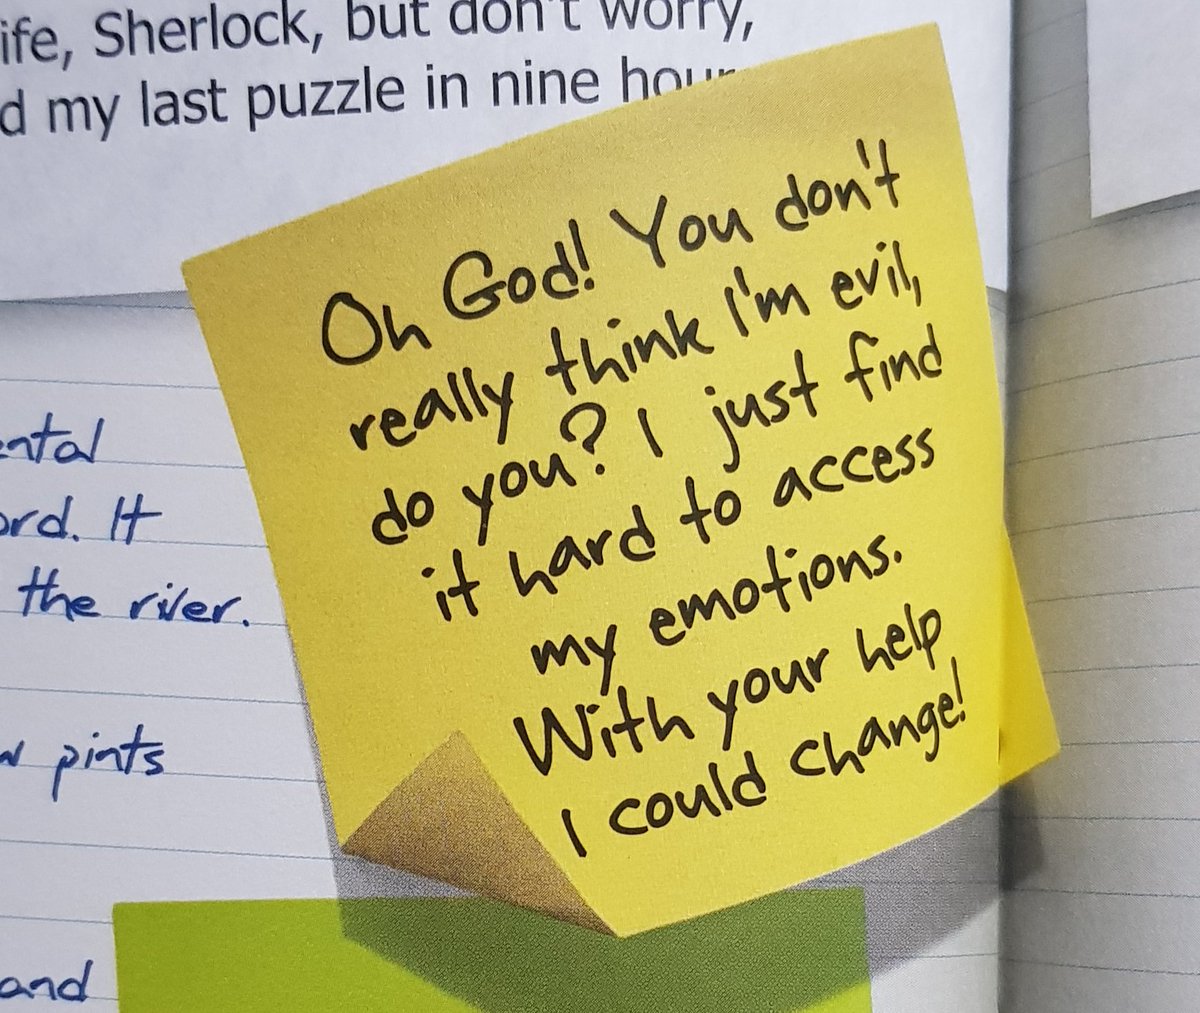 ife, Sherlock, but don't worry,
d my last puzzle in nine
Oh God! You don't
really think I'm evil,
do you? I just find
it hard to access
my emotions.
With your help
I could change!
ental
ord. It
the river.
pints
and